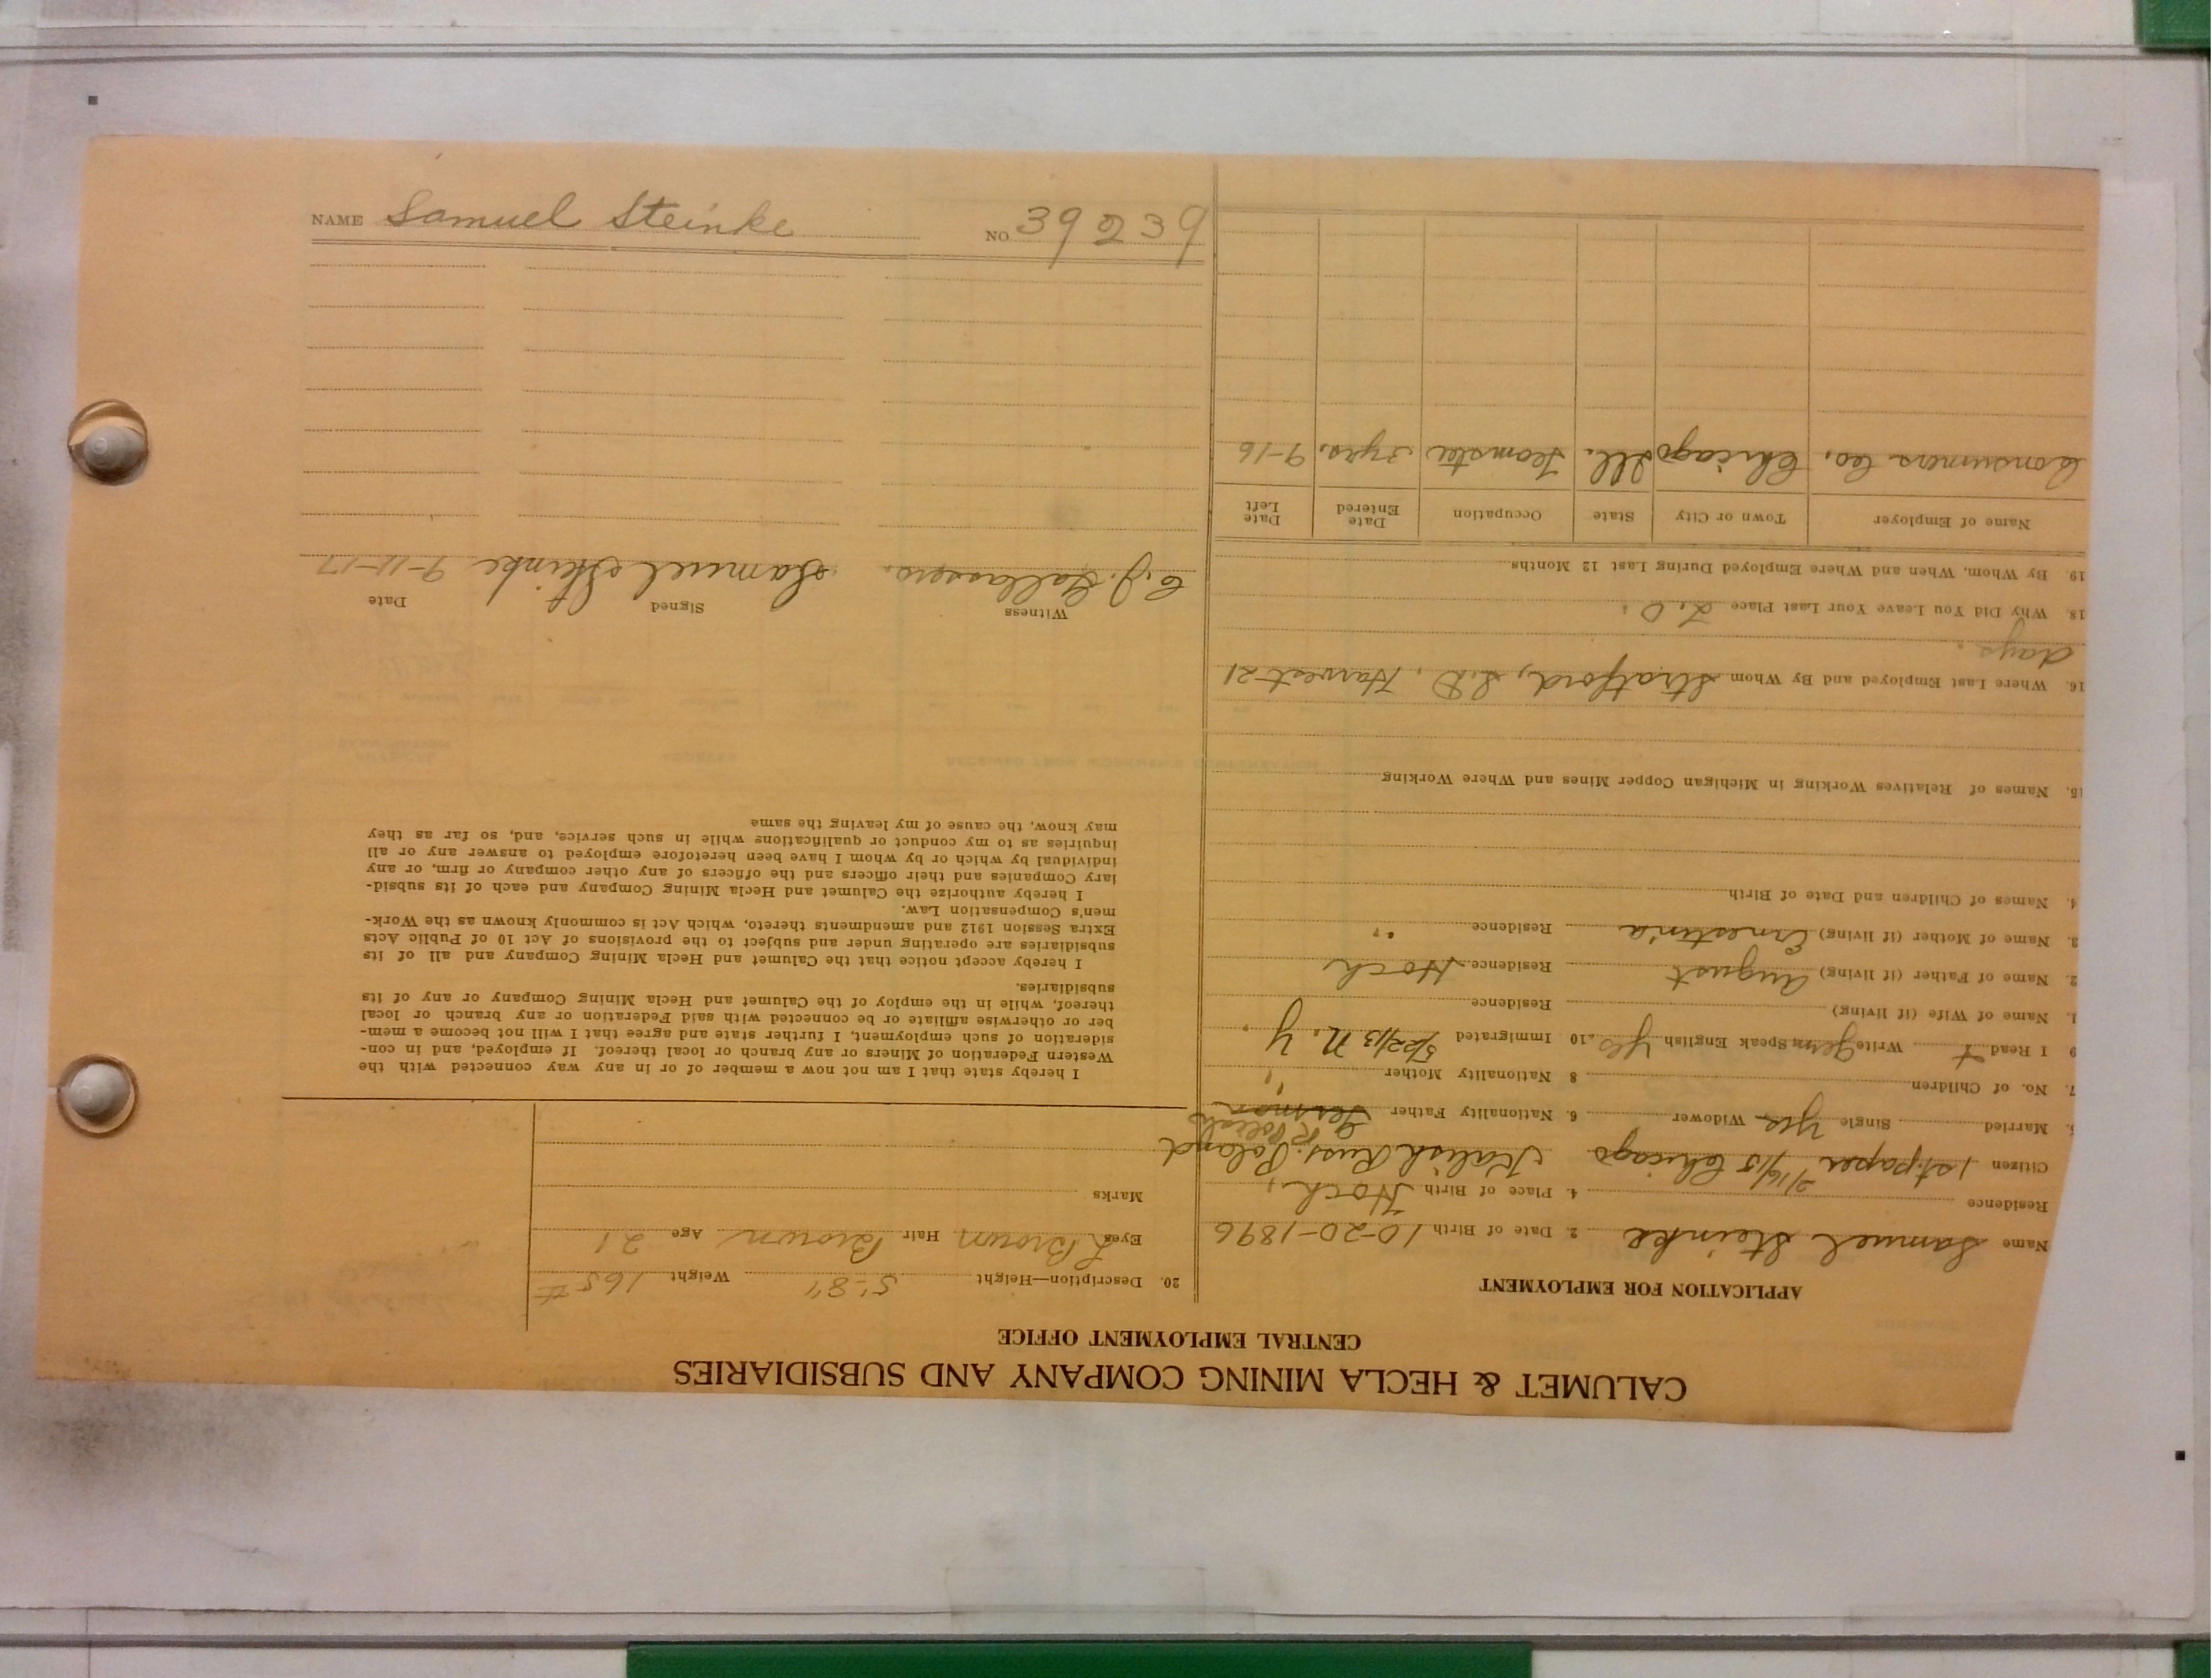 CALUMET & HECLA MINING COMPANY AND SUBSIDIARIES
CENTRAL EMPLOYMENT OFFICE
APPLICATION FOR EMPLOYMENT
Name Samuel Steinke 2. Date of Birth 10-20-1896
Residence 4. Place of Birth Hoch,
Citizen 1st paper 2/16/15 Chicago Kalish Russ. Poland
Married Single Yes Widower 6. Nationality Father German
7. No. of Children 8 Nationality Mother "
9 I Read + Write Germ Speak English Yes 10 Immigrated 5/22/13 N. Y.
1. Name of Wife (if living) Residence
2. Name of Father (if living) August Residence Hoch
3. Name of Mother (if living) Ernestina Residence "
4. Names of Children and Date of Birth
15. Names of Relatives Working in Michigan Copper Mines and Where Working
16. Where Last Employed and By Whom Stratford, S.D. Harvest 21
days.
18. Why Did You Leave Your Last Place L.O.
19. By Whom, When and Where Employed During Last 12 Months
Name of Employer Town or City State Occupation Date Entered Date Left
Consumers Co. Chicago Ill. Teamster 3 yrs. 9-16
20. Description—Height 5'-8" Weight 165#
Eyes L Brown Hair Brown Age 21
Marks
I hereby state that I am not now a member of or in any way connected with the
Western Federation of Miners or any branch or local thereof. If employed, and in con-
sideration of such employment, I further state and agree that I will not become a mem-
ber or otherwise affiliate or be connected with said Federation or any branch or local
thereof, while in the employ of the Calumet and Hecla Mining Company or any of its
subsidiaries.
I hereby accept notice that the Calumet and Hecla Mining Company and all of its
subsidiaries are operating under and subject to the provisions of Act 10 of Public Acts
Extra Session 1912 and amendments thereto, which Act is commonly known as the Work-
men's Compensation Law.
I hereby authorize the Calumet and Hecla Mining Company and each of its subsid-
iary Companies and their officers and the officers of any other company or firm, or any
individual by which or by whom I have been heretofore employed to answer any or all
inquiries as to my conduct or qualifications while in such service, and, so far as they
may know, the cause of my leaving the same
Witness Signed Date
C. J. Samuel Steinke 9-11-17
NAME Samuel Steinke NO 39239